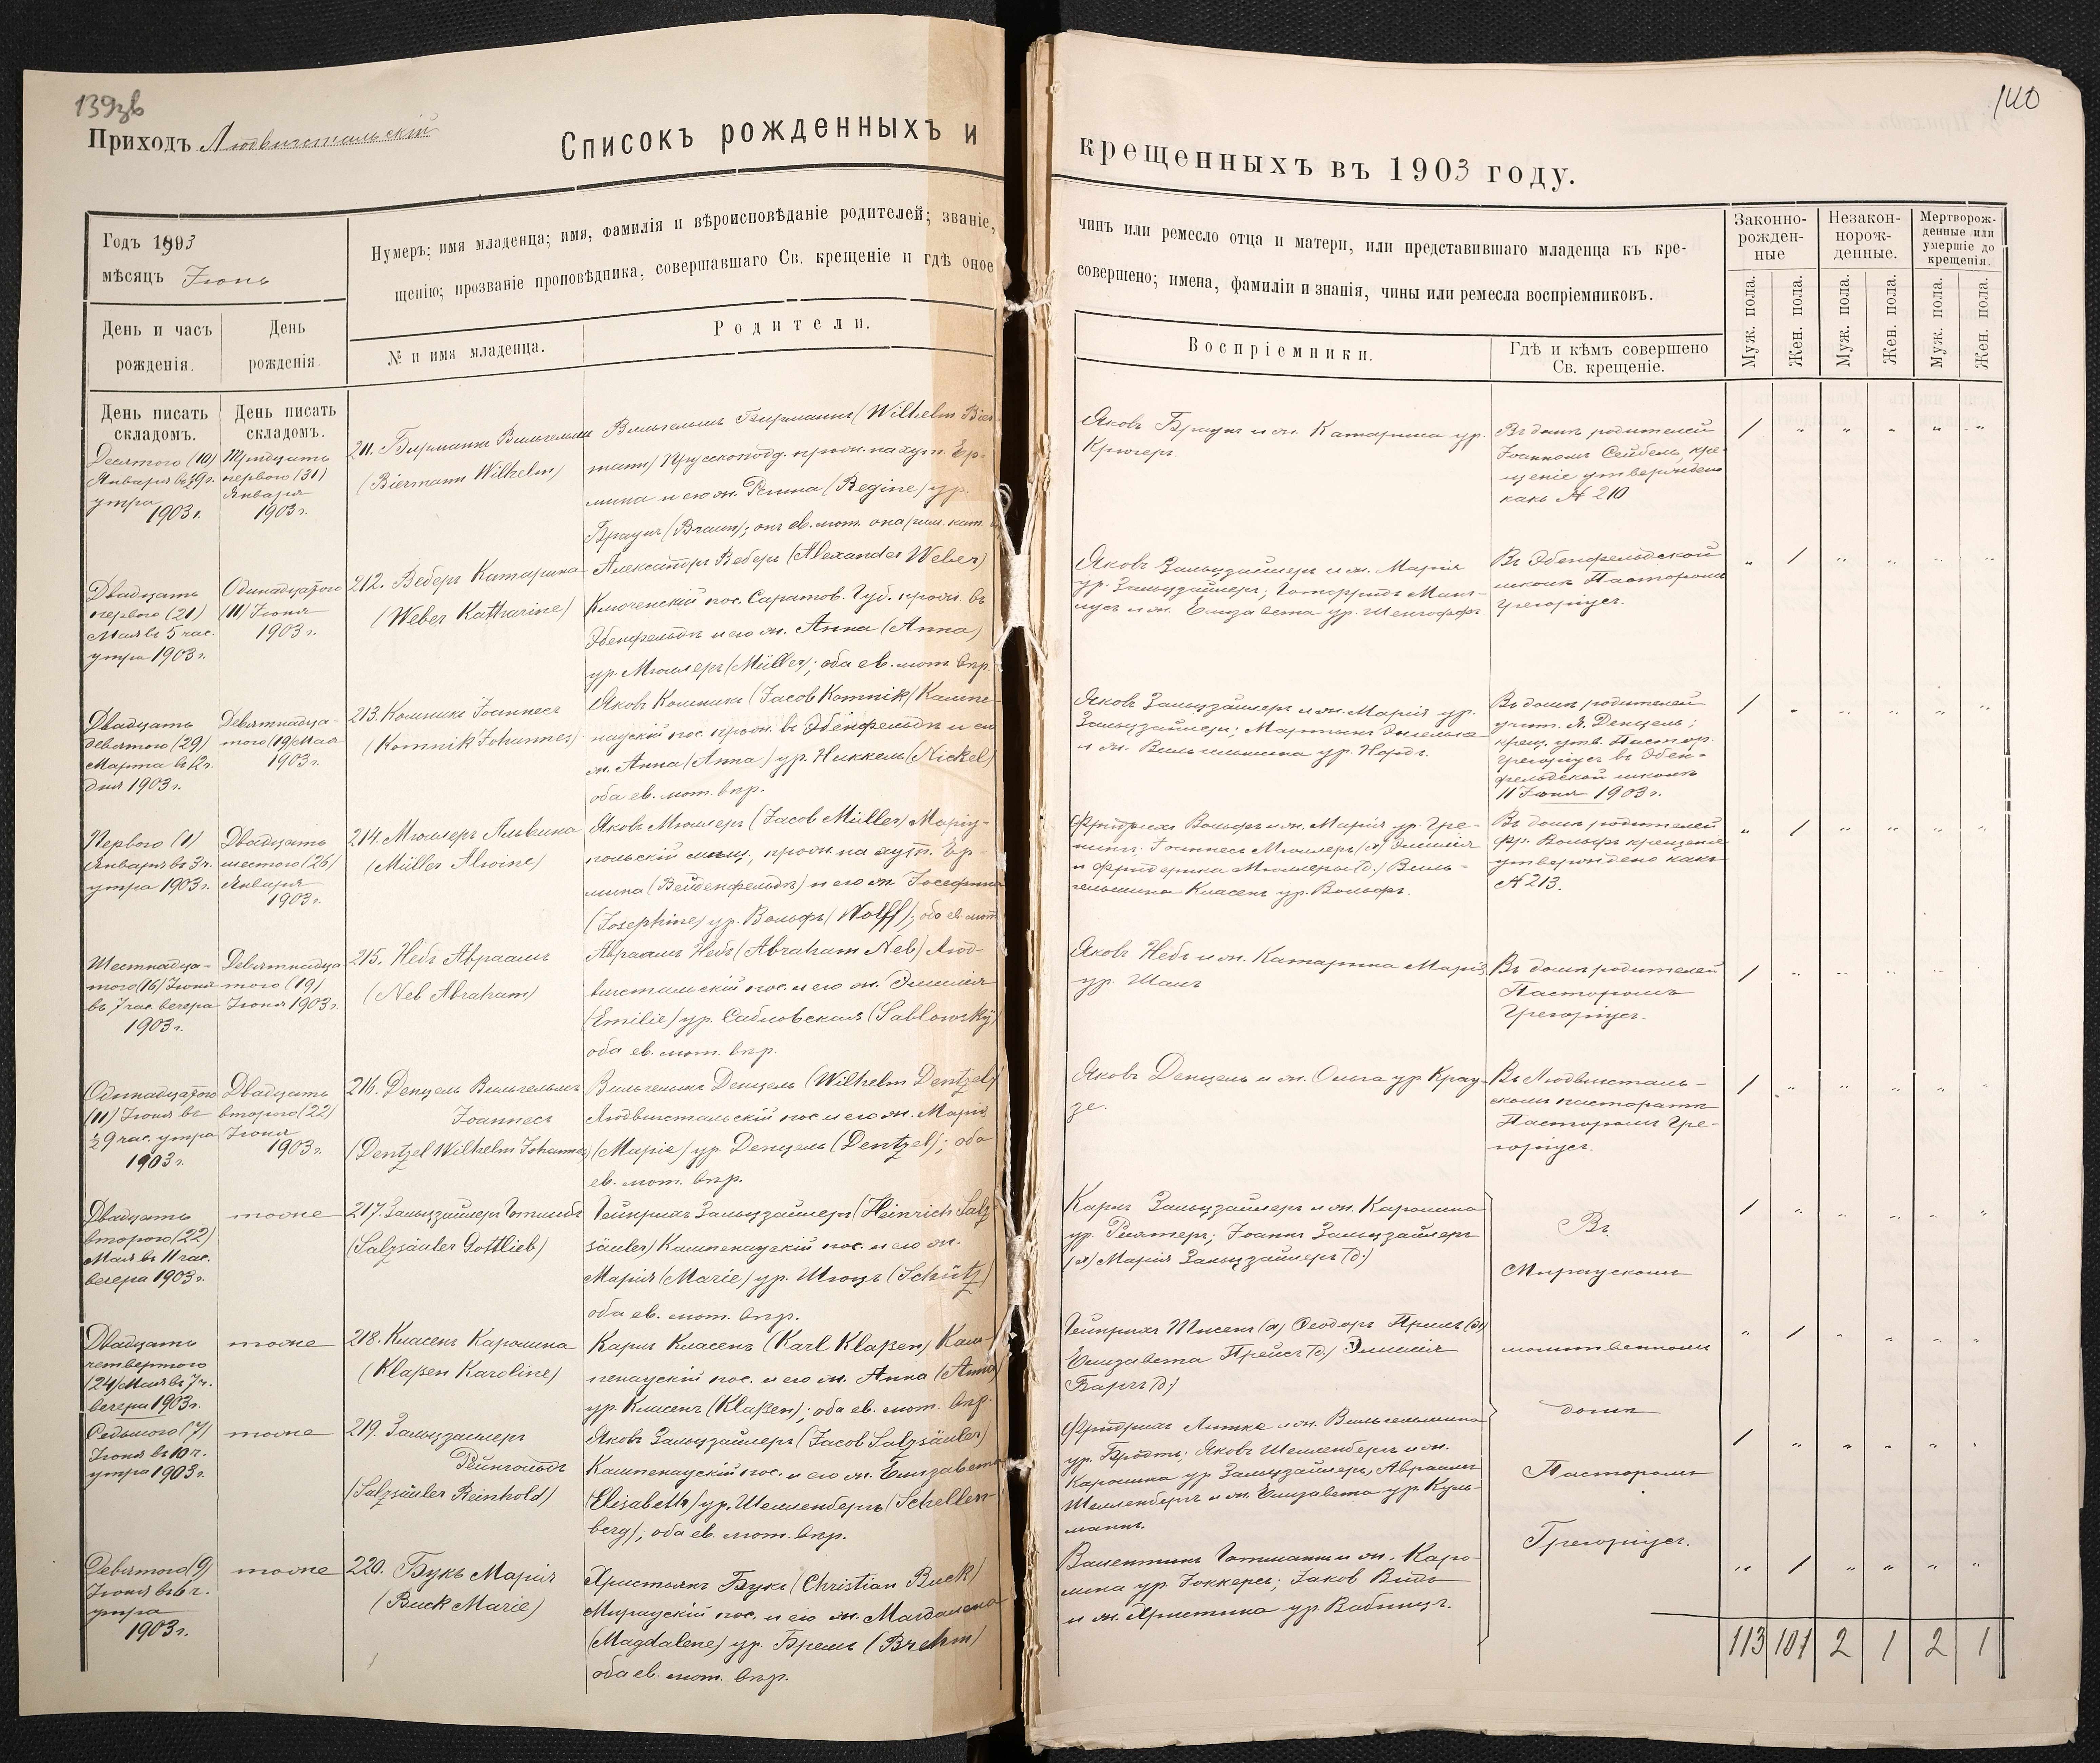 139зв
140
Приходъ Людвигстальскій
Списокъ рожденныхъ и
крещенныхъ въ 1903 году.
Годъ 1903
мѣсяцъ Іюнь
Нумеръ; имя младенца; имя, фамилія и вѣроисповѣданіе родителей; званіе,
щенію; прозваніе проповѣдника, совершавшаго Св. крещеніе и гдѣ оное
чинъ или ремесло отца и матери, или представившаго младенца къ кре-
совершено; имена, фамиліи и знанія, чины или ремесла воспріемниковъ.
День и часъ
рожденія.
День
рожденія.
№ и имя младенца.
Родители.
Воспріемники.
Гдѣ и кѣмъ совершено
Св. крещеніе.
Законно-
рожден-
ные
Незакон-
норож-
денные.
Мертворож-
денные или
умершіе до
крещенія.
Муж. пола.
Жен. пола.
Муж. пола.
Жен. пола.
Муж. пола.
Жен. пола.
День писать
складомъ.
День писать
складомъ.
Десятого (10)
Января въ 9 ч.
утра
1903 г.
Тридцать
первого (31)
Января
1903 г.
211. Бирманнъ Вильгельмъ
(Biermann Wilhelm)
Вильгельмъ Бирманнъ (Wilhelm Bier-
mann) Прусскоподд. прож. на хут. Ер-
мина и его ж. Регина (Regine) ур.
Браунъ (Braun); онъ ев. лют. она рим. кат.
Яковъ Браунъ и ж. Катарина ур.
Крюгеръ.
Въ домѣ родителей
Іоанномъ Сейбель, кре-
щеніе утверждено
какъ № 210
Двадцать
первого (21)
Мая въ 5 час.
утра 1903 г.
Одинадцатого
(11) Іюня
1903 г.
212. Веберъ Катарина
(Weber Katharine)
Александръ Веберъ (Alexander Weber)
Ключенскій пос. Саратов. Губ. прож. въ
Эбенфельдъ и его ж. Анна (Anna)
ур. Мюллеръ (Müller); оба ев. лют. впр.
Яковъ Зальцзайлеръ и ж. Марія
ур. Зальцзайлеръ; Готфридъ Маг-
нусъ и ж. Елизавета ур. Шенгоффъ
Въ Эбенфельдской
школѣ Пасторомъ
Грегоріусъ.
Двадцать
девятого (29)
Марта въ 12 ч.
дня 1903 г.
Девятнадца-
того (19) Мая
1903 г.
213. Комникъ Іоаннесъ
(Komnik Johannes)
Яковъ Комникъ (Jacob Komnik) Кампе-
наускій пос. прож. въ Эбенфельдъ и его
ж. Анна (Anna) ур. Никкель (Nickel)
оба ев. лют. впр.
Яковъ Зальцзайлеръ и ж. Марія ур.
Зальцзайлеръ; Мартынъ Энгельке
и ж. Вильгельмина ур. Нордъ.
Въ домѣ родителей
учит. Я. Денцель;
крещ. утв. Пастор.
Грегоріусъ въ Эбен-
фельдской школѣ
11 Іюня 1903 г.
Первого (1)
Января въ 3 ч.
утра 1903 г.
Двадцать
шестого (26)
Января
1903 г.
214. Мюллеръ Альвина
(Müller Alwine)
Яковъ Мюллеръ (Jacob Müller) Маріу-
польскій мѣщ., прож. на хут. Ер-
мина (Вейденфельдъ) и его ж. Іосефина
(Josephine) ур. Вольфъ (Wolff); оба ев. лют.
Фридрихъ Вольфъ и ж. Марія ур. Гре-
нингъ. Іоаннесъ Мюллеръ (х) Эмилія
и Фридерика Мюллеры (д.) Виль-
гельмина Класенъ ур. Вольфъ.
Въ домѣ родителей
Фр. Вольфъ крещеніе
утверждено какъ
№ 213.
Шестнадца-
того (16) Іюня
въ 7 час. вечера
1903 г.
Девятнадца-
того (19)
Іюня 1903 г.
215. Небъ Авраамъ
(Neb Abraham)
Авраамъ Небъ (Abraham Neb) Люд-
вигстальскій пос. и его ж. Эмилія
(Emilie) ур. Сабловская (Sablowsky)
оба ев. лют. впр.
Яковъ Небъ и ж. Катарина Марія
ур. Шанъ
Въ домѣ родителей
Пасторомъ
Грегоріусъ.
Одинадцатого
(11) Іюня въ
½9 час. утра
1903 г.
Двадцать
второго (22)
Іюня
1903 г.
216. Денцель Вильгельмъ
Іоаннесъ
(Dentzel Wilhelm Johannes)
Вильгельмъ Денцель (Wilhelm Dentzel)
Людвигстальскій пос. и его ж. Марія
(Marie) ур. Денцель (Dentzel); оба
ев. лют. впр.
Яковъ Денцель и ж. Ольга ур. Крау-
зе.
Въ Людвигсталь-
скомъ пасторатѣ
Пасторомъ Гре-
горіусъ.
Двадцать
второго (22)
Мая въ 11 час.
вечера 1903 г.
тоже
217. Зальцзайлеръ Готлибъ
(Salzsäuler Gottlieb)
Гейнрихъ Зальцзайлеръ (Heinrich Salz-
säuler) Кампенаускій пос. и его ж.
Марія (Marie) ур. Шюцъ (Schütz)
оба ев. лют. впр.
Карлъ Зальцзайлеръ и ж. Каролина
ур. Рихтеръ; Іоаннъ Зальцзайлеръ
(х) Марія Зальцзайлеръ (д.)
Въ
Мираускомъ
Двадцать
четвертого
(24) Мая въ 7 ч.
вечера 1903 г.
тоже
218. Класенъ Каролина
(Klaßen Karoline)
Карлъ Класенъ (Karl Klaßen) Кам-
пенаускій пос. и его ж. Анна (Anna)
ур. Класенъ (Klaßen); оба ев. лют. впр.
Елизавета Прейсъ (д.) Эмилія
молитвенномъ
домѣ
Седьмого (7)
Іюня въ 10 ч.
утра 1903 г.
тоже
219. Зальцзайлеръ
Рейнгольдъ
(Salzsäuler Reinhold)
Яковъ Зальцзайлеръ (Jacob Salzsäuler)
Кампенаускій пос. и его ж. Елизавета
(Elisabeth) ур. Шелленбергъ (Schellen-
berg); оба ев. лют. впр.
Фридрихъ Литке и ж. Вильгельмина
ур. Бродтъ; Яковъ Шелленбергъ и ж.
Каролина ур. Зальцзайлеръ, Авраамъ
Шелленбергъ и ж. Елизавета ур. Куль-
манъ.
Пасторомъ
Девятого (9)
Іюня въ 6 ч.
утра
1903 г.
тоже
220. Букъ Марія
(Buck Marie)
Христьянъ Букъ (Christian Buck)
Мираускій пос. и его ж. Магдалена
(Magdalene) ур. Бремъ (Brehm)
оба ев. лют. впр.
Валентинъ Готманъ и ж. Каро-
лина ур. Іоккерсъ; Іаков Видъ
и ж. Христина ур. Вабницъ.
Грегоріусъ.
113 101 2 1 2 1